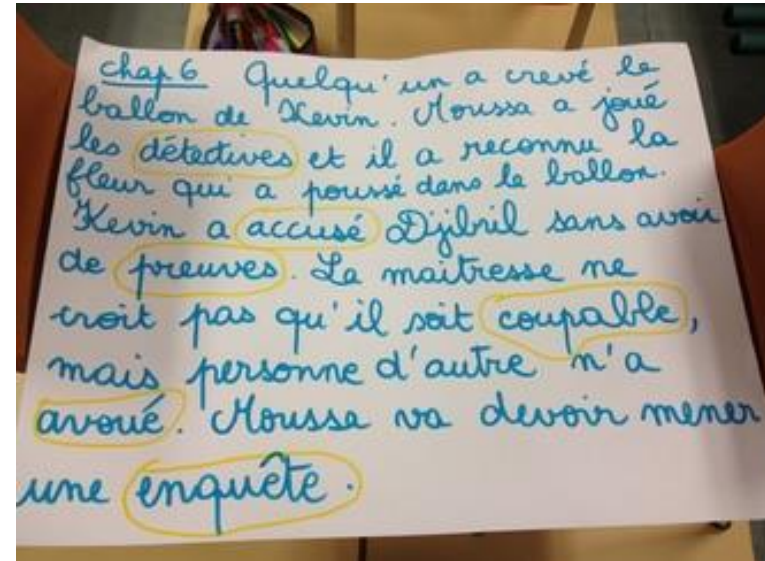 chap 6 Quelqu'un a crevé le
ballon de Kevin. Moussa a joué
les détectives et il a reconnu la
fleur qui a poussé dans le ballon.
Kevin a accusé Djibril sans avoir
de preuves. La maitresse ne
croit pas qu'il soit coupable,
mais personne d'autre n'a
avoué. Moussa va devoir mener
une enquête.